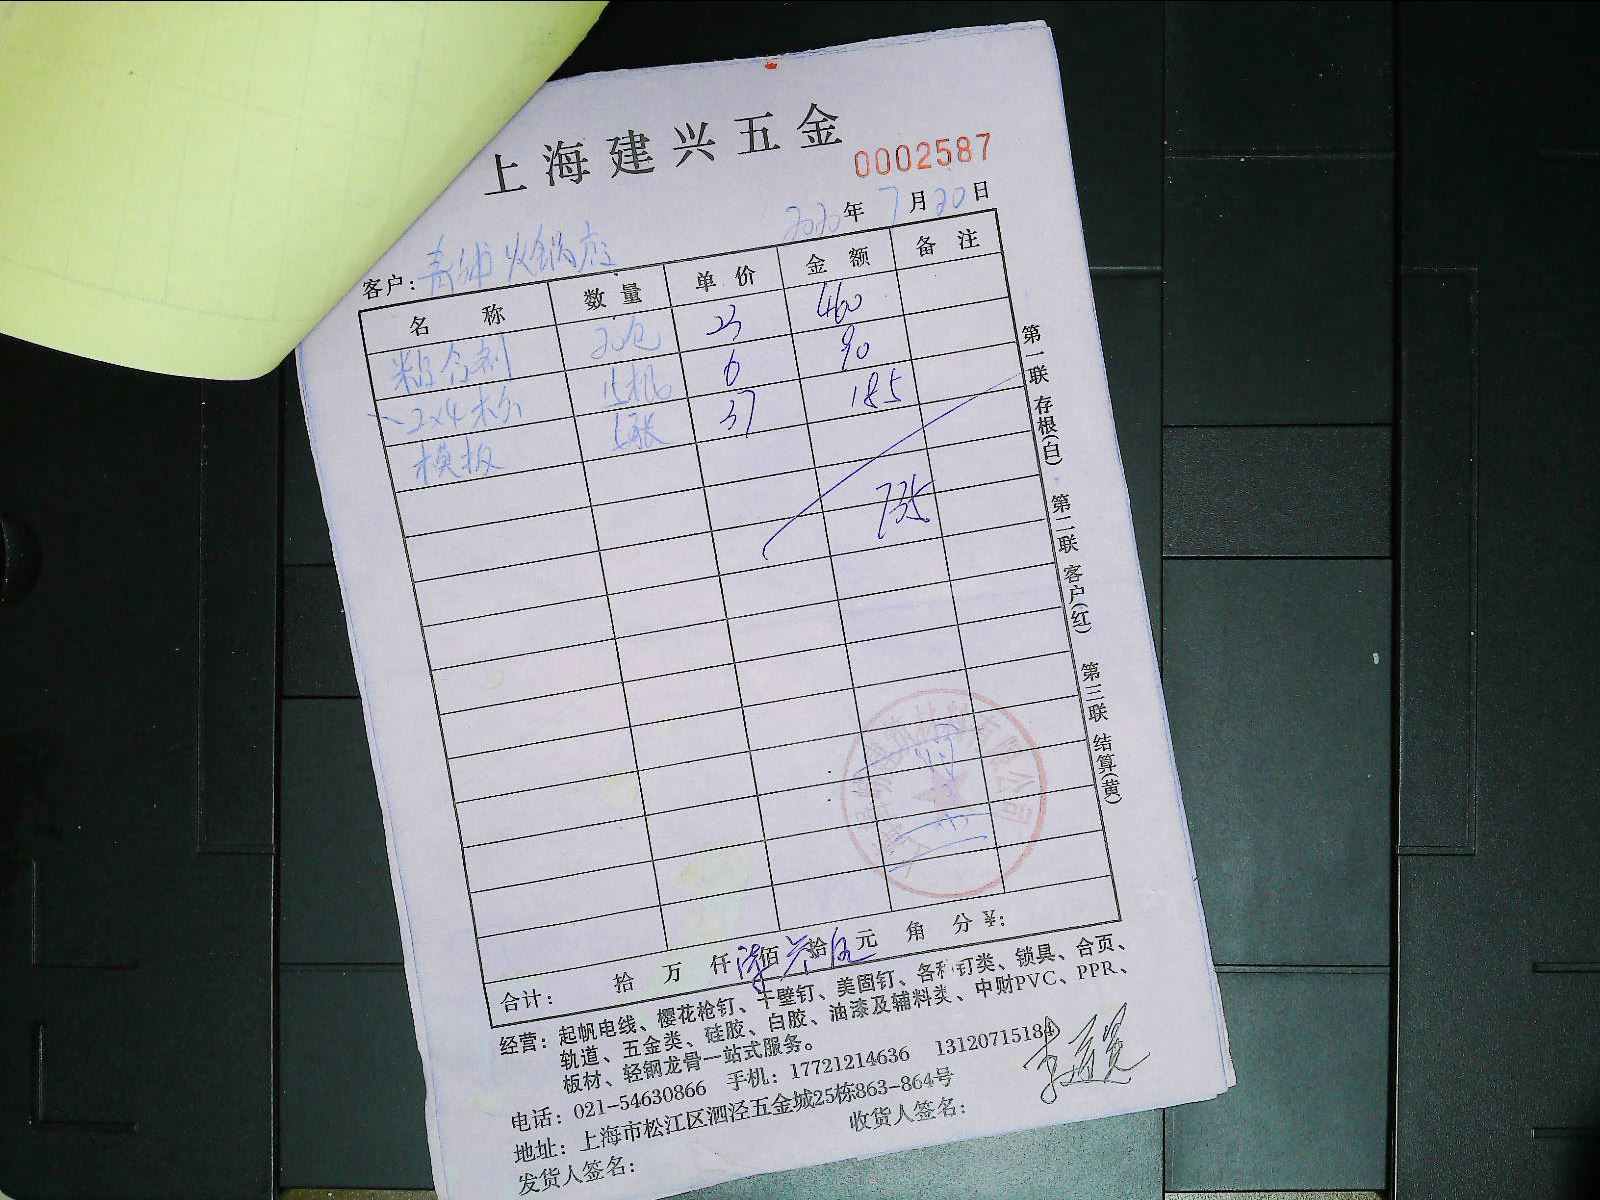 上海建兴五金
0002587
2020年 7月20日
客户: 青浦火锅店
名 称 数 量 单 价 金 额 备 注
粘合剂 20包 23 460
2x4木方 15根 6 90
模板 5张 37 185
735
合计: 拾 万 仟 柒佰 叁拾 伍元 角 分 ¥:
经营: 起帆电线、樱花枪钉、干壁钉、美固钉、各种钉类、锁具、合页、
轨道、五金类、硅胶、白胶、油漆及辅料类、中财PVC、PPR、
板材、轻钢龙骨一站式服务。
电话: 021-54630866 手机: 17721214636 13120715184
地址: 上海市松江区泗泾五金城25栋863-864号
发货人签名: 收货人签名:
第一联 存根(白) 第二联 客户(红) 第三联 结算(黄)